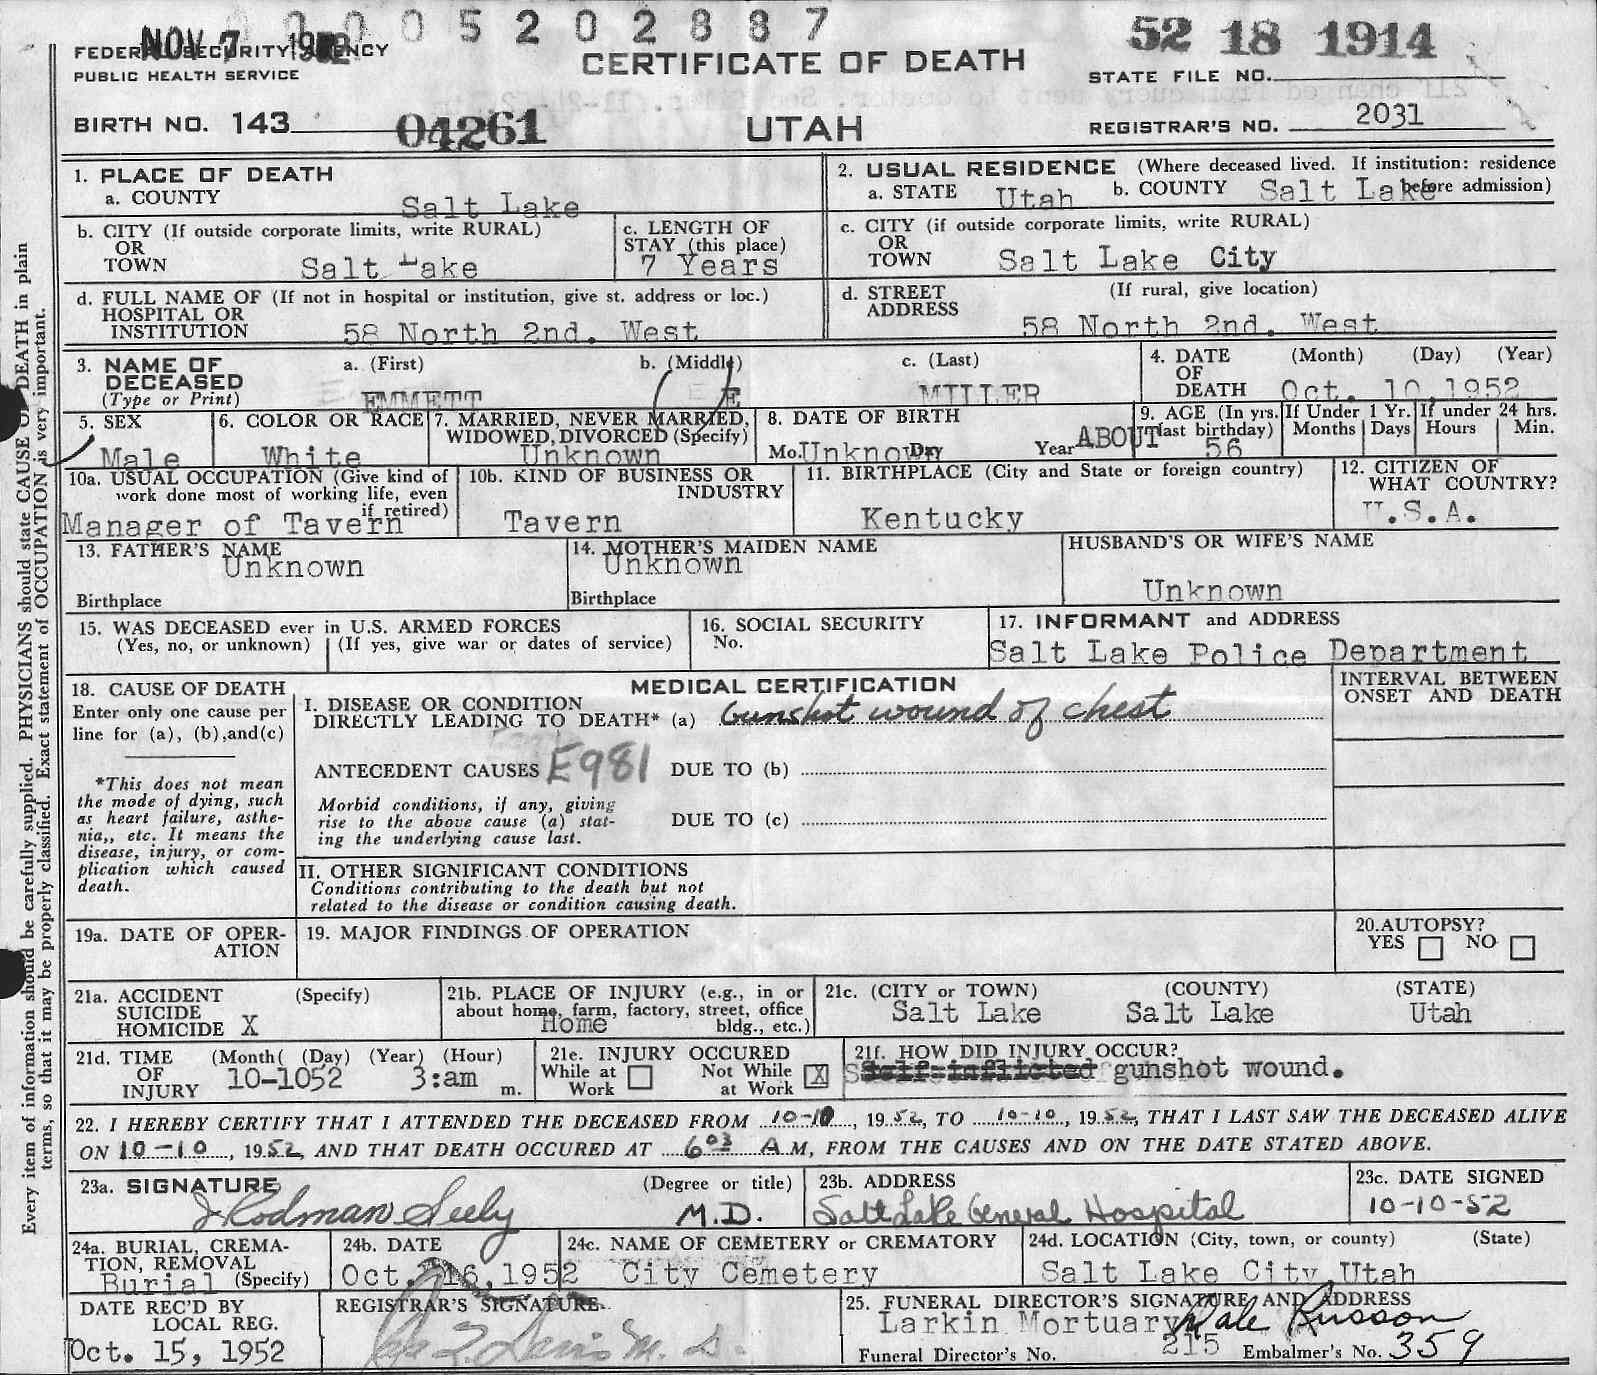 0 0 0 0 5 2 0 2 8 8 7
NOV 7 1952
52 18 1914
FEDERAL SECURITY AGENCY
PUBLIC HEALTH SERVICE
CERTIFICATE OF DEATH
STATE FILE NO.
BIRTH NO. 143 04261
UTAH
REGISTRAR'S NO. 2031
Every item of information should be carefully supplied. PHYSICIANS should state CAUSE OF DEATH in plain
terms, so that it may be properly classified. Exact statement of OCCUPATION is very important.
1. PLACE OF DEATH
a. COUNTY
Salt Lake
2. USUAL RESIDENCE (Where deceased lived. If institution: residence
before admission)
a. STATE Utah b. COUNTY Salt Lake
b. CITY (If outside corporate limits, write RURAL)
OR
TOWN Salt Lake
c. LENGTH OF
STAY (this place)
7 Years
c. CITY (if outside corporate limits, write RURAL)
OR
TOWN Salt Lake City
d. FULL NAME OF (If not in hospital or institution, give st. address or loc.)
HOSPITAL OR
INSTITUTION 58 North 2nd. West
d. STREET (If rural, give location)
ADDRESS
58 North 2nd. West
3. NAME OF
DECEASED
(Type or Print)
a. (First) b. (Middle) c. (Last)
EMMETT E MILLER
4. DATE (Month) (Day) (Year)
OF
DEATH Oct. 10,1952
5. SEX
Male
6. COLOR OR RACE
White
7. MARRIED, NEVER MARRIED,
WIDOWED, DIVORCED (Specify)
Unknown
8. DATE OF BIRTH
Mo. Unknown Day Year
9. AGE (In yrs.
last birthday)
ABOUT 56
If Under 1 Yr.
Months Days
If under 24 hrs.
Hours Min.
10a. USUAL OCCUPATION (Give kind of
work done most of working life, even
if retired)
Manager of Tavern
10b. KIND OF BUSINESS OR
INDUSTRY
Tavern
11. BIRTHPLACE (City and State or foreign country)
Kentucky
12. CITIZEN OF
WHAT COUNTRY?
U.S.A.
13. FATHER'S NAME
Unknown
Birthplace
14. MOTHER'S MAIDEN NAME
Unknown
Birthplace
HUSBAND'S OR WIFE'S NAME
Unknown
15. WAS DECEASED ever in U.S. ARMED FORCES
(Yes, no, or unknown) (If yes, give war or dates of service)
16. SOCIAL SECURITY
No.
17. INFORMANT and ADDRESS
Salt Lake Police Department
18. CAUSE OF DEATH
Enter only one cause per
line for (a), (b),and(c)
*This does not mean
the mode of dying, such
as heart failure, asthe-
nia,, etc. It means the
disease, injury, or com-
plication which caused
death.
MEDICAL CERTIFICATION
I. DISEASE OR CONDITION
DIRECTLY LEADING TO DEATH* (a) Gunshot wound of chest
ANTECEDENT CAUSES E981 DUE TO (b)
Morbid conditions, if any, giving
rise to the above cause (a) stat-
ing the underlying cause last.
DUE TO (c)
II. OTHER SIGNIFICANT CONDITIONS
Conditions contributing to the death but not
related to the disease or condition causing death.
INTERVAL BETWEEN
ONSET AND DEATH
19a. DATE OF OPER-
ATION
19. MAJOR FINDINGS OF OPERATION
20.AUTOPSY?
YES NO
21a. ACCIDENT (Specify)
SUICIDE
HOMICIDE X
21b. PLACE OF INJURY (e.g., in or
about home, farm, factory, street, office
bldg., etc.)
Home
21c. (CITY or TOWN) (COUNTY) (STATE)
Salt Lake Salt Lake Utah
21d. TIME (Month( (Day) (Year) (Hour)
OF
INJURY 10-1052 3:am m.
21e. INJURY OCCURED
While at Work Not While at Work X
21f. HOW DID INJURY OCCUR?
Self-inflicted gunshot wound.
22. I HEREBY CERTIFY THAT I ATTENDED THE DECEASED FROM 10-10, 1952, TO 10-10, 1952, THAT I LAST SAW THE DECEASED ALIVE
ON 10-10, 1952, AND THAT DEATH OCCURED AT 6 03 A M, FROM THE CAUSES AND ON THE DATE STATED ABOVE.
23a. SIGNATURE (Degree or title)
J Rodman Seely M.D.
23b. ADDRESS
Salt Lake General Hospital
23c. DATE SIGNED
10-10-52
24a. BURIAL, CREMA-
TION, REMOVAL
Burial (Specify)
24b. DATE
Oct. 16,1952
24c. NAME OF CEMETERY or CREMATORY
City Cemetery
24d. LOCATION (City, town, or county) (State)
Salt Lake City Utah
DATE REC'D BY
LOCAL REG.
Oct. 15, 1952
REGISTRAR'S SIGNATURE
M. D.
25. FUNERAL DIRECTOR'S SIGNATURE AND ADDRESS
Larkin Mortuary Dale Russon
Funeral Director's No. 215 Embalmer's No. 359